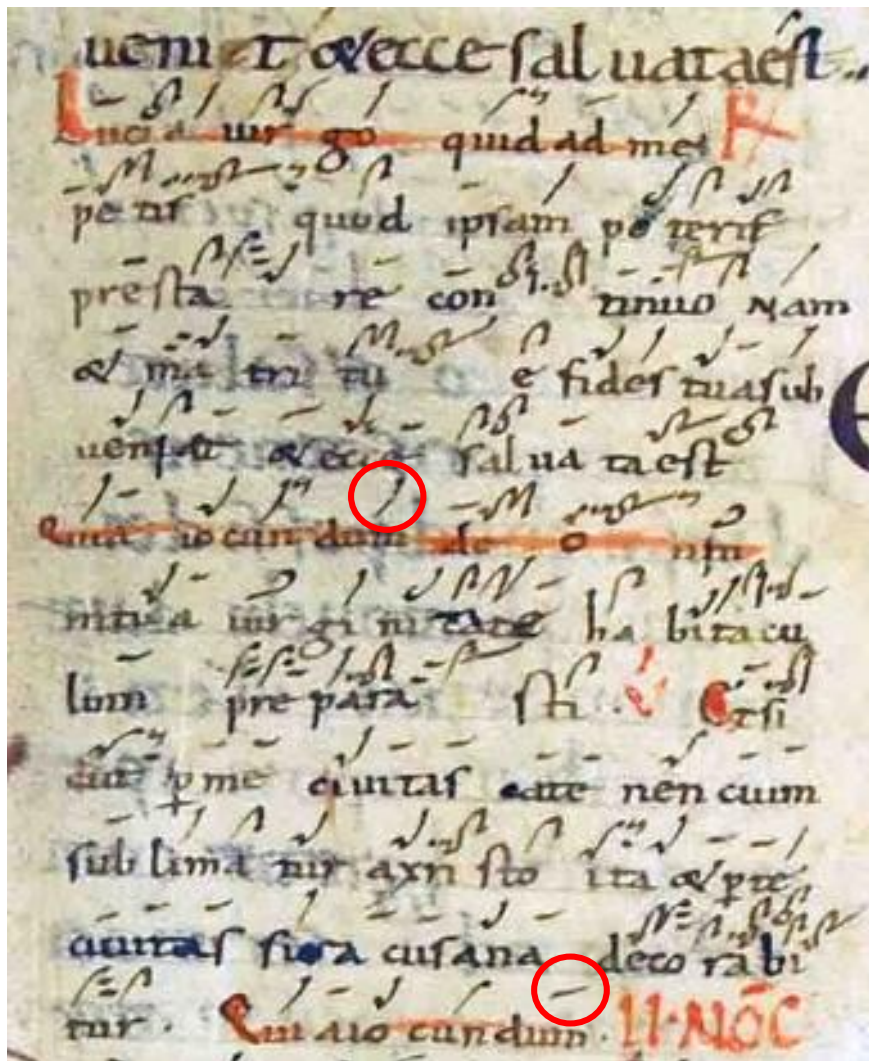 uenit & ecce saluata est
Lucia uirgo quid ad me R
petis quod ipsam poteris
prestare continuo Nam
& matri tue fides tua sub
uenit & ecce saluata est
Quia iocundum deo in tu
uirginitate habitacu
lum preparasti. V Et si
cut p me ciuitas catenen cium
sublimatur a xpi sto ita & p te
ciuitas siracusana decorabi
tur. Quia iocundum. II. NOC